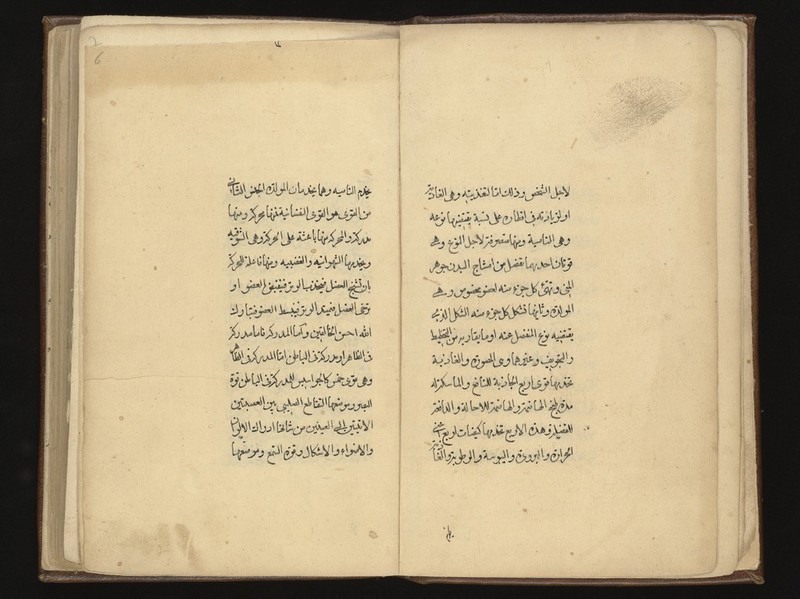 لاجل الشخص وذلك اما لتغذيته وهى الغاذية
او لزيادته فى اقطاره على نسبة يقتضيها نوعه
وهى النامية ومنها متصرفة لاجل النوع وهى
قوتان احديهما تفصل من امشاج البدن جوهر
المنى وتهيئ كل جزء منه لعضو مخصوص وهى
المولدة وثانيها تشكل كل جزء منه الشكل الذى
يقتضيه نوع المنفصل عنه او ما يقاربه من التخطيط
والتجويف وغيرهما وهى المصورة والغاذية
تخدمها قوى اربع الجاذبة للنافع والماسكة له
مدة طبخ الهاضمة والهاضمة للاحالة والدافعة
للفضل وهذه الاربع تخدمها كيفيات اربع
الحرارة والبرودة واليبوسة والرطوبة
يخدم النامية وهما يخدمان المولدة الجنس الثانى
من القوى هو القوى النفسانية فمنها محركة ومنها
مدركة والمحركة منها باعثة على الحركة وهى الشوقية
ويخدمها الشهوانية والغضبية ومنها فاعلة للحركة
بان تشنج العضل فيجذب الوتر فينقبض العضو او
ترخى العضل فيمتد الوتر فينبسط العضو فتبارك
الله احسن الخالقين واما المدركة فاما مدركة
فى الظاهر او مدركة فى الباطن اما المدركة فى الظاهر
وهى قوى خمس كالجواسيس للمدركة فى الباطن قوة
البصر وموضعها التقاطع الصليبى بين العصبتين
الاتيتين الى العينين من شانها ادراك الالوان
والاضواء والاشكال وقوة السمع وموضعها